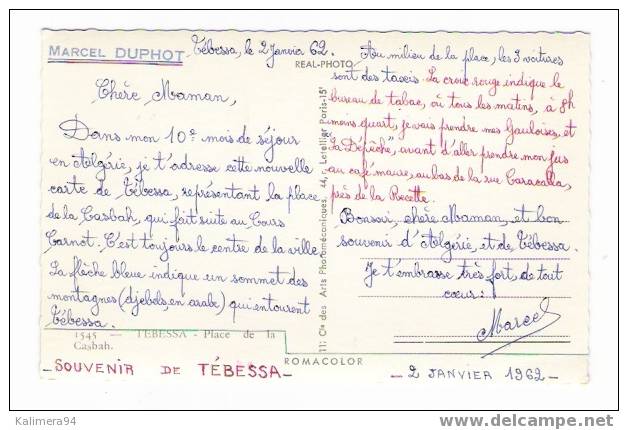 MARCEL DUPHOT
Tébessa, le 2 Janvier 62.
REAL-PHOTO
Chère Maman,
Dans mon 10e mois de séjour
en Algérie, je t'adresse cette nouvelle
carte de Tébessa, représentant la place
de la Casbah, qui fait suite au Cours
Carnot. C'est toujours le centre de la ville.
La flèche bleue indique un sommet des
montagnes (djebels, en arabe) qui entourent
Tébessa.
1545 — TEBESSA - Place de la
Casbah.
SOUVENIR DE TÉBESSA
11: Cie des Arts Photomécaniques, 44, r. Letellier Paris-15e
Au milieu de la place, les 3 voitures
sont des taxis. La croix rouge indique le
bureau de tabac, où tous les matins, à 8h
moins quart, je vais prendre mes Gauloises, et
"La Dépêche", avant d'aller prendre mon jus
au café maure, au bas de la rue Caracalla,
près de la Recette.
Bonsoir, chère Maman, et bon
souvenir d'Algérie, et de Tébessa.
Je t'embrasse très fort, de tout
cœur:
Marcel
ROMACOLOR
- 2 JANVIER 1962 -
Kalimera94
delcampe.net